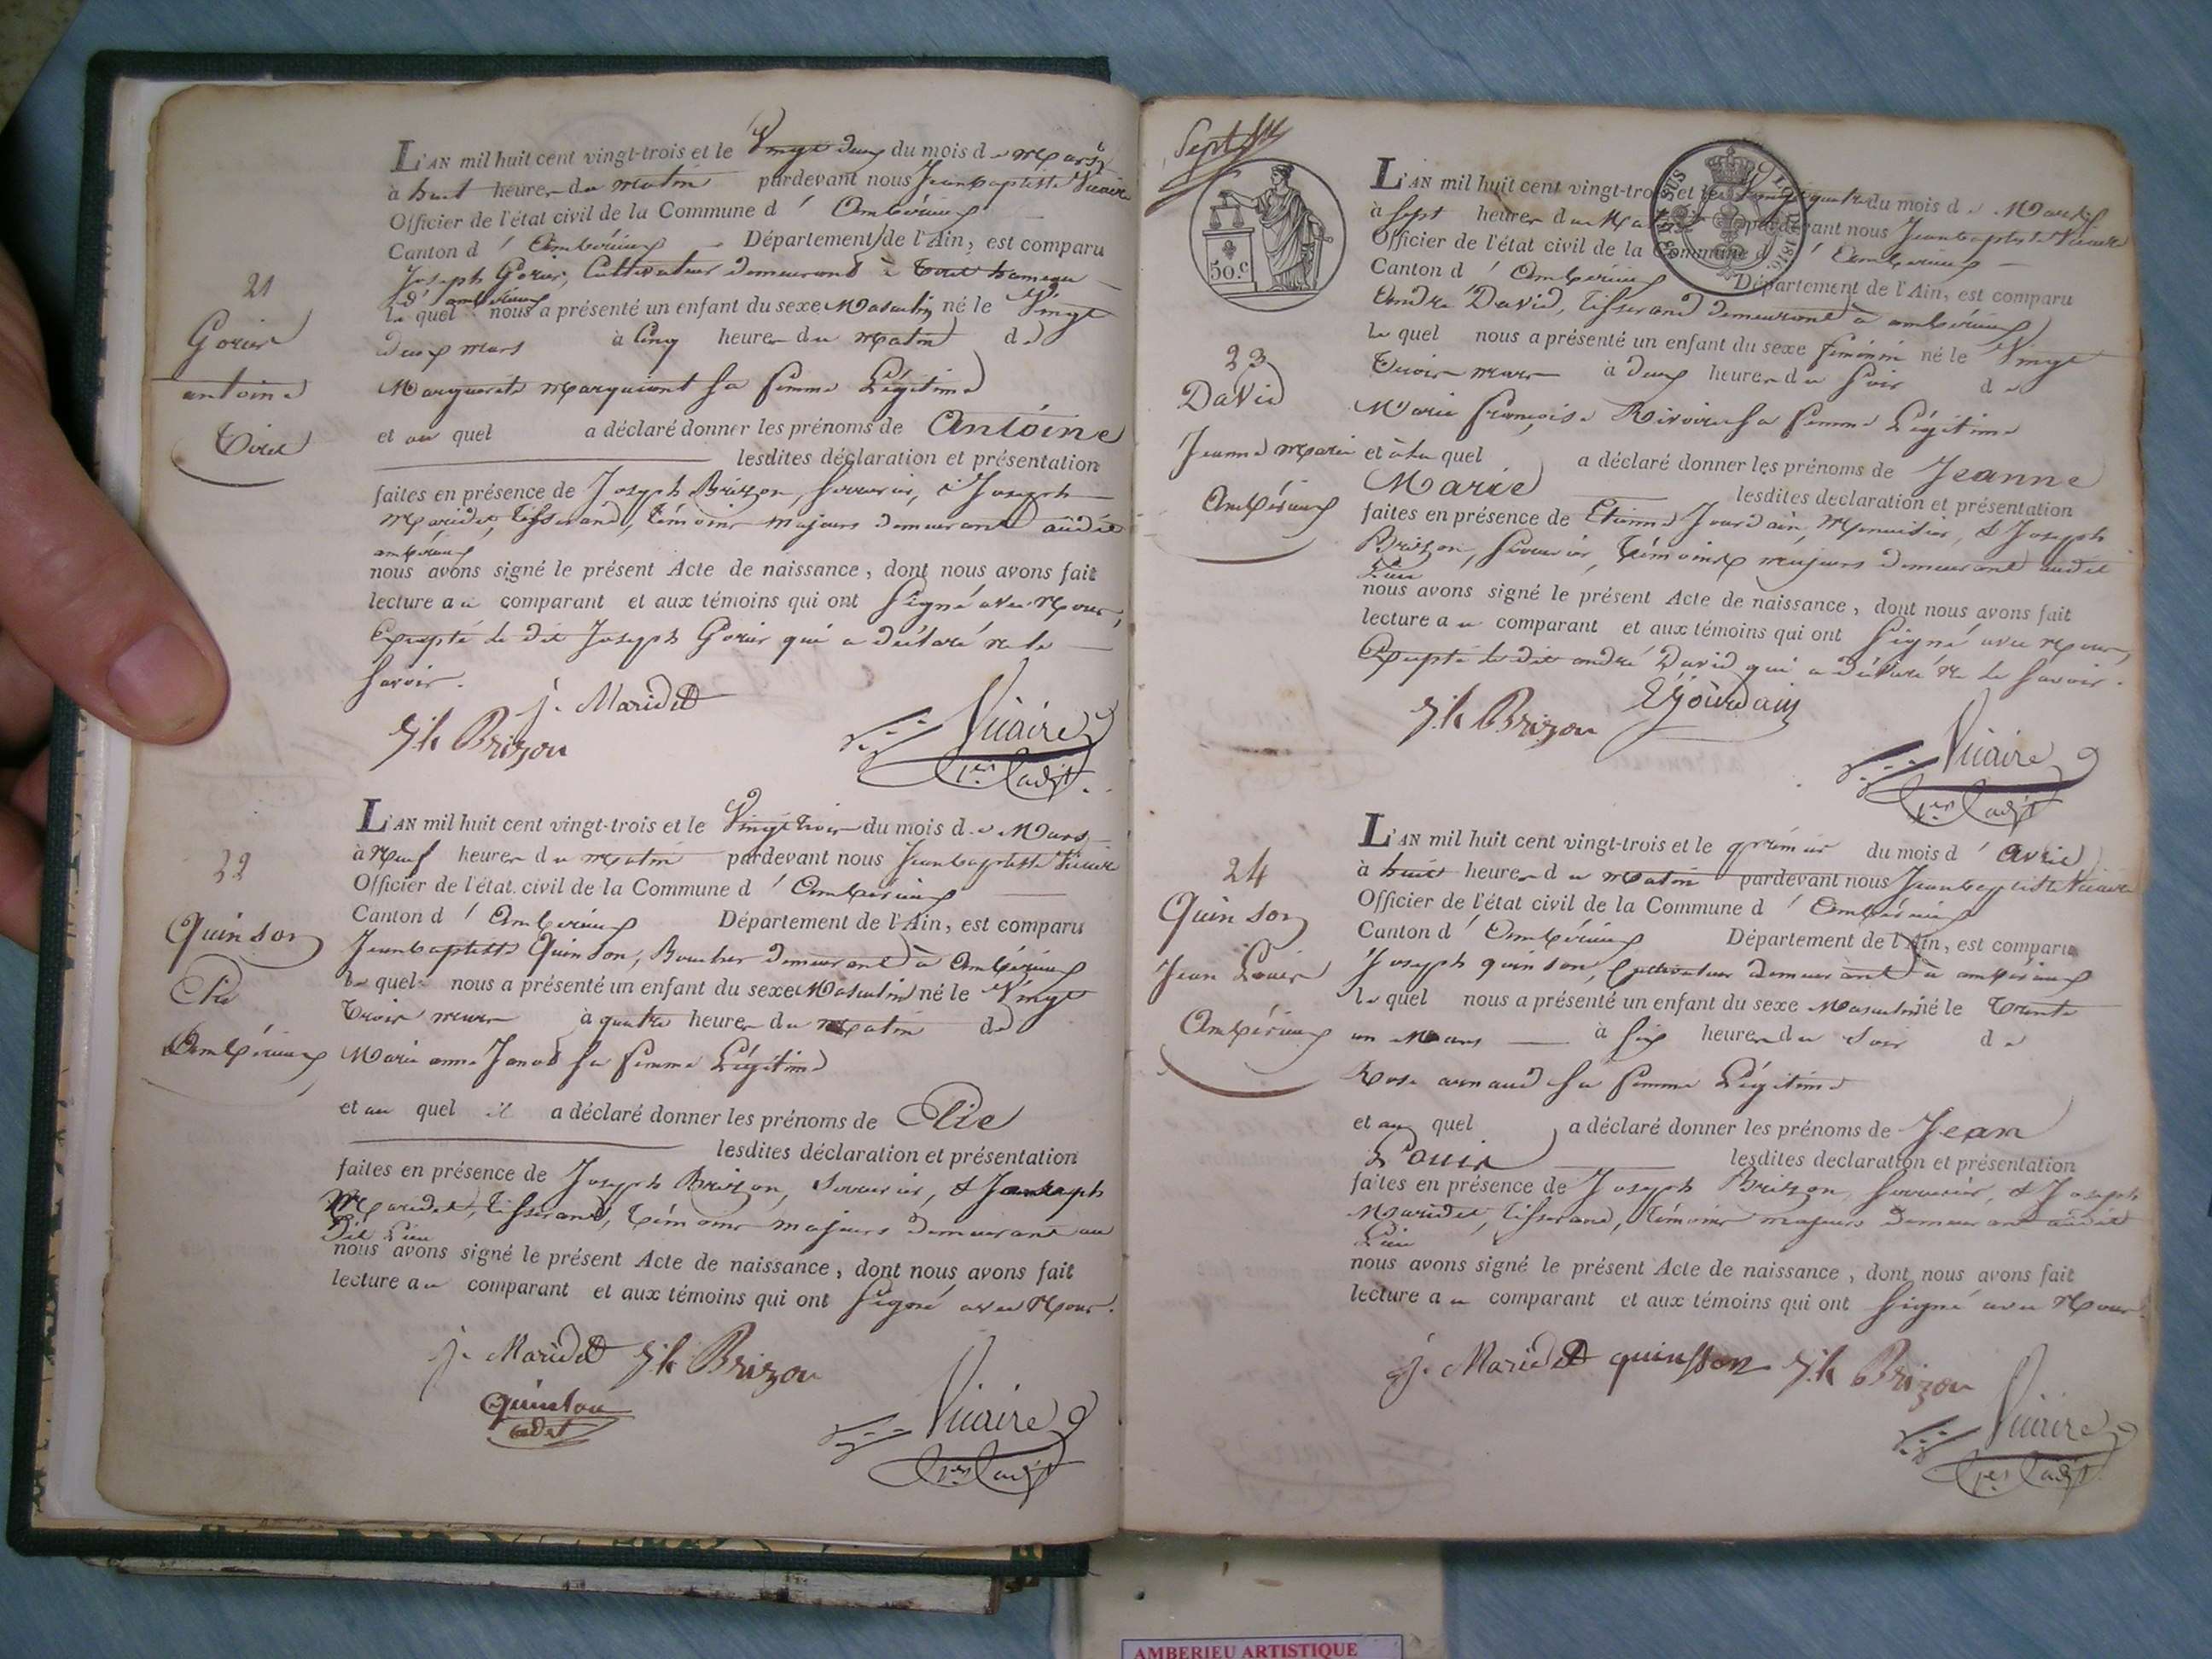 21
Gorier
antoine
Tiret
L'AN mil huit cent vingt-trois et le Vingt deux du mois de Mars
à huit heures du matin pardevant nous Jean baptiste Vicaire
Officier de l'état civil de la Commune d' Ambérieux
Canton d' Ambérieux Département de l'Ain, est comparu
Joseph Gorier, Cultivateur demeurant à Tiret hameau
d' ambérieux
le quel nous a présenté un enfant du sexe Masculin né le Vingt
deux mars à Cinq heures du matin de
Marguerite sa femme Légitime
et au quel a déclaré donner les prénoms de Antoine
lesdites déclaration et présentation
faites en présence de Joseph Brizon, serrurier, & Joseph
Maridet, tisserand, témoins majeurs demeurant audit
ambérieux
nous avons signé le présent Acte de naissance, dont nous avons fait
lecture au comparant et aux témoins qui ont signé avec Nous,
Excepté le dit Joseph Gorier qui a déclaré ne le
savoir.
j. Maridet
Jh Brizon
Vicaire
1er adjt
22
Quinson
Elie
Ambérieux
L'AN mil huit cent vingt-trois et le Vingt trois du mois de Mars
à Neuf heures du matin pardevant nous Jean baptiste Vicaire
Officier de l'état civil de la Commune d' Ambérieux
Canton d' Ambérieux Département de l'Ain, est comparu
Jean baptiste Quinson, Boucher demeurant à Ambérieux
le quel nous a présenté un enfant du sexe Masculin né le Vingt
Trois mars à quatre heures du matin de
Marie anne Janod sa femme Légitime
et au quel il a déclaré donner les prénoms de Elie
lesdites déclaration et présentation
faites en présence de Joseph Brizon, serrurier, & Joseph
Maridet, tisserand, témoins majeurs demeurant au
dit Lieu
nous avons signé le présent Acte de naissance, dont nous avons fait
lecture au comparant et aux témoins qui ont signé avec Nous.
j. Maridet Jh Brizon
quinson
cadet
Vicaire
1er adjt
Sept
50.c
LOI DE 1816.
23
David
Jeanne Marie
Ambérieux
L'AN mil huit cent vingt-trois et le Vingt quatre du mois de Mars
à sept heures du Matin pardevant nous Jean baptiste Vicaire
Officier de l'état civil de la Commune d' Ambérieux
Canton d' Ambérieux Département de l'Ain, est comparu
André David, tisserand demeurant à ambérieux
le quel nous a présenté un enfant du sexe féminin né le Vingt
Trois mars à deux heures du soir de
Marie françoise Rivoire sa femme Légitime
et à la quel a déclaré donner les prénoms de Jeanne
Marie lesdites declaration et présentation
faites en présence de Etienne Jourdain, Menuisier, & Joseph
Brizon, serrurier, témoins majeurs demeurant audit
Lieu
nous avons signé le présent Acte de naissance, dont nous avons fait
lecture au comparant et aux témoins qui ont signé avec Nous,
Excepté le dit andré David qui a déclaré ne le savoir.
Jh Brizon E Jourdain
Vicaire
1er adjt
24
Quinson
Jean Louis
Ambérieux
L'AN mil huit cent vingt-trois et le premier du mois d' Avril
à huit heures du matin pardevant nous Jean baptiste Vicaire
Officier de l'état civil de la Commune d' Ambérieux
Canton d' Ambérieux Département de l'Ain, est comparu
Joseph quinson, Cultivateur demeurant à ambérieux
le quel nous a présenté un enfant du sexe Masculin né le Trente
un Mars à six heures du Soir de
Rose arnaud sa femme Légitime
et au quel a déclaré donner les prénoms de Jean
Louis lesdites declaration et présentation
faites en présence de Joseph Brizon, serrurier, & Joseph
Maridet, tisserand, témoins majeurs demeurant audit
Lieu
nous avons signé le présent Acte de naissance, dont nous avons fait
lecture au comparant et aux témoins qui ont signé avec Nous
j. Maridet quinsson Jh Brizon
Vicaire
1er adjt
AMBERIEU ARTISTIQUE